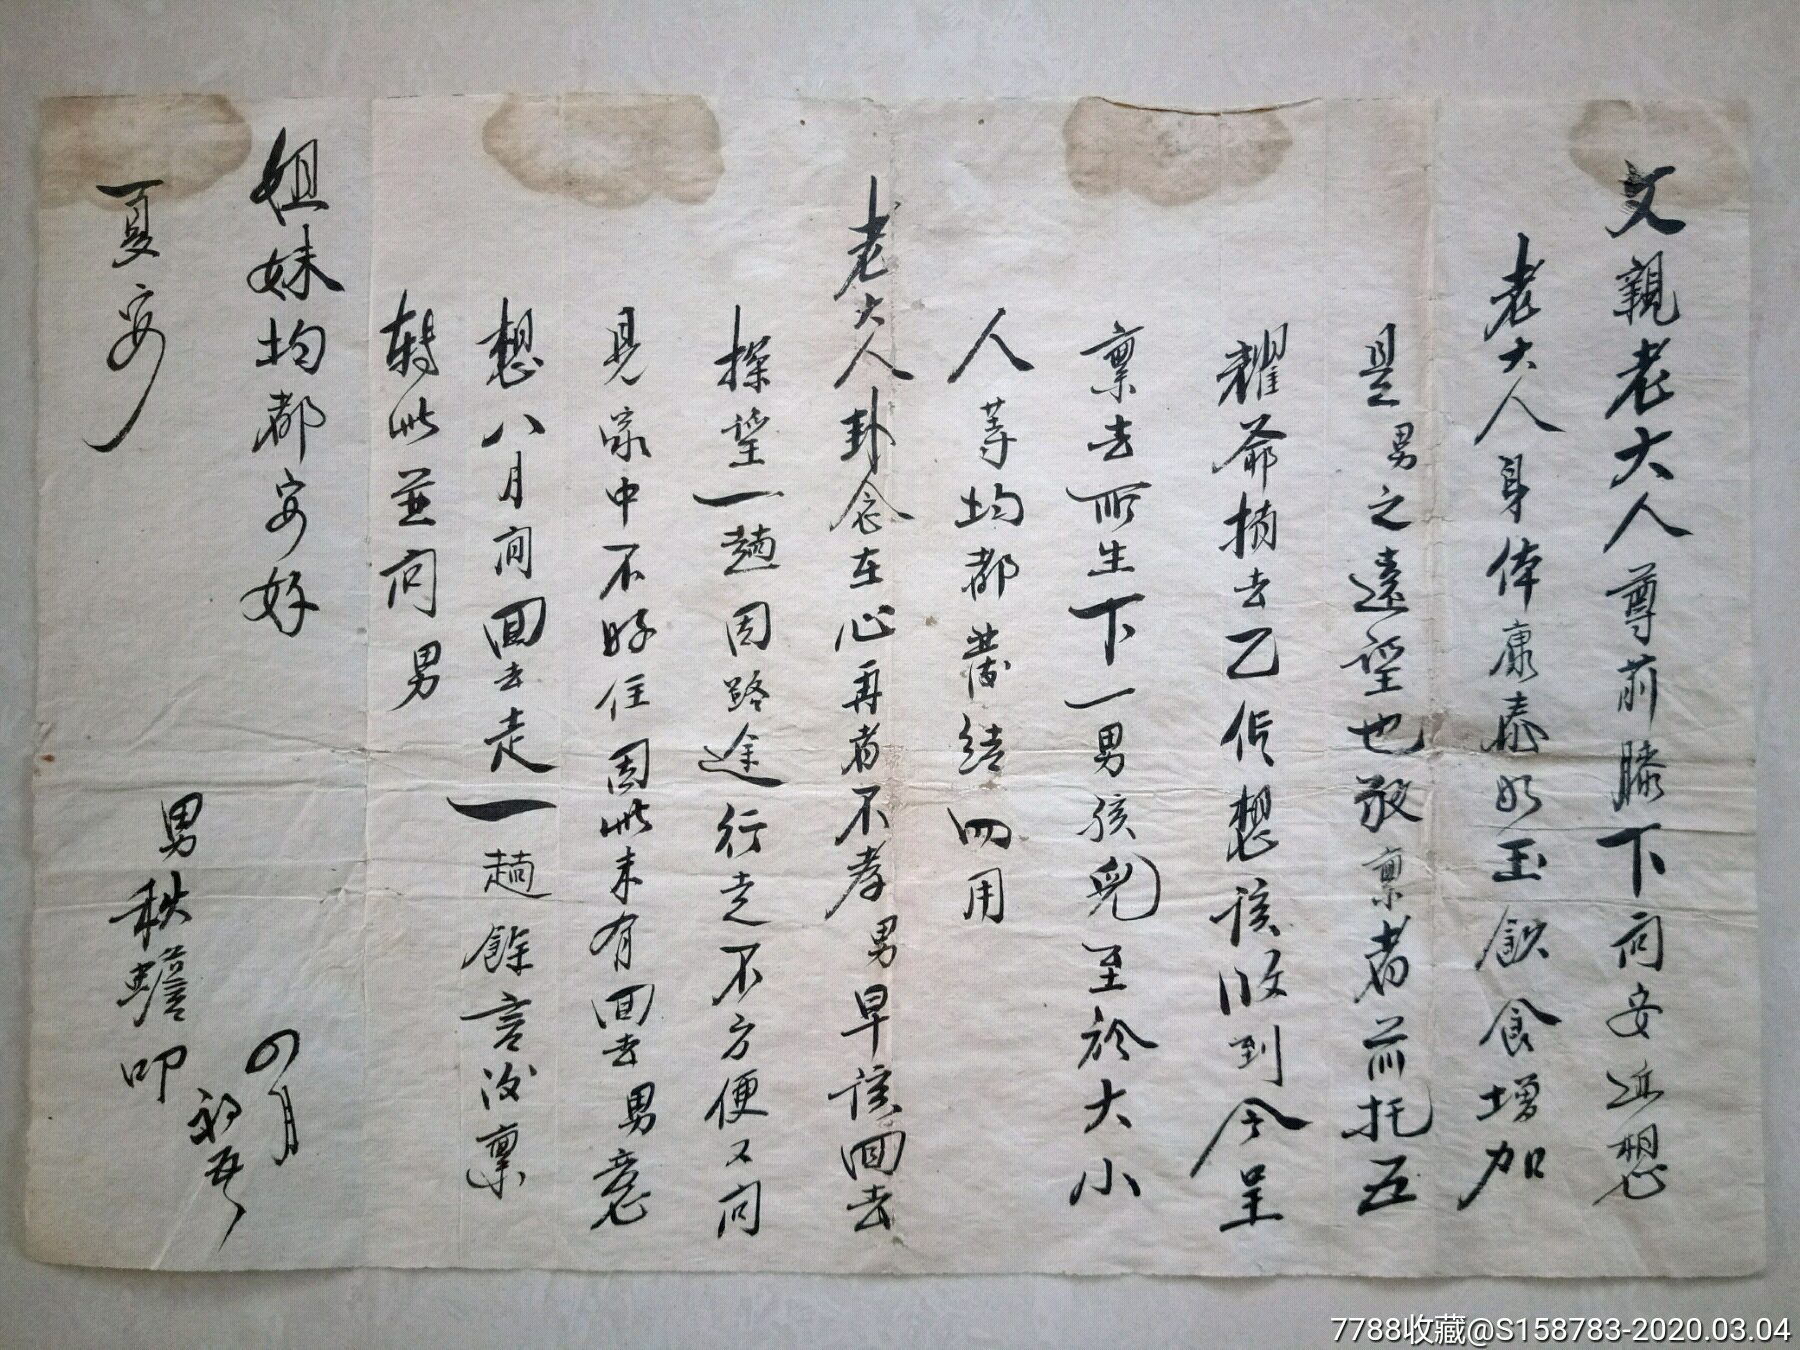 父親老大人尊前膝下问安近想
老大人身体康泰如玉飲食增加
是男之遠望也敬禀者前托五
耀爺捎去乙信想该收到今呈
禀去所生下一男孩兒至於大小
人等均都
老大人卦念在心再者不孝男早该回去
探望一趟因路途行走不方便又问
見家中不好住因此未有回去男意
想八月间回去走一趟餘言後禀
转此並问男
姐妹均都安好
夏安
四月
初五
男秋蟾叩
7788收藏@S158783-2020.03.04